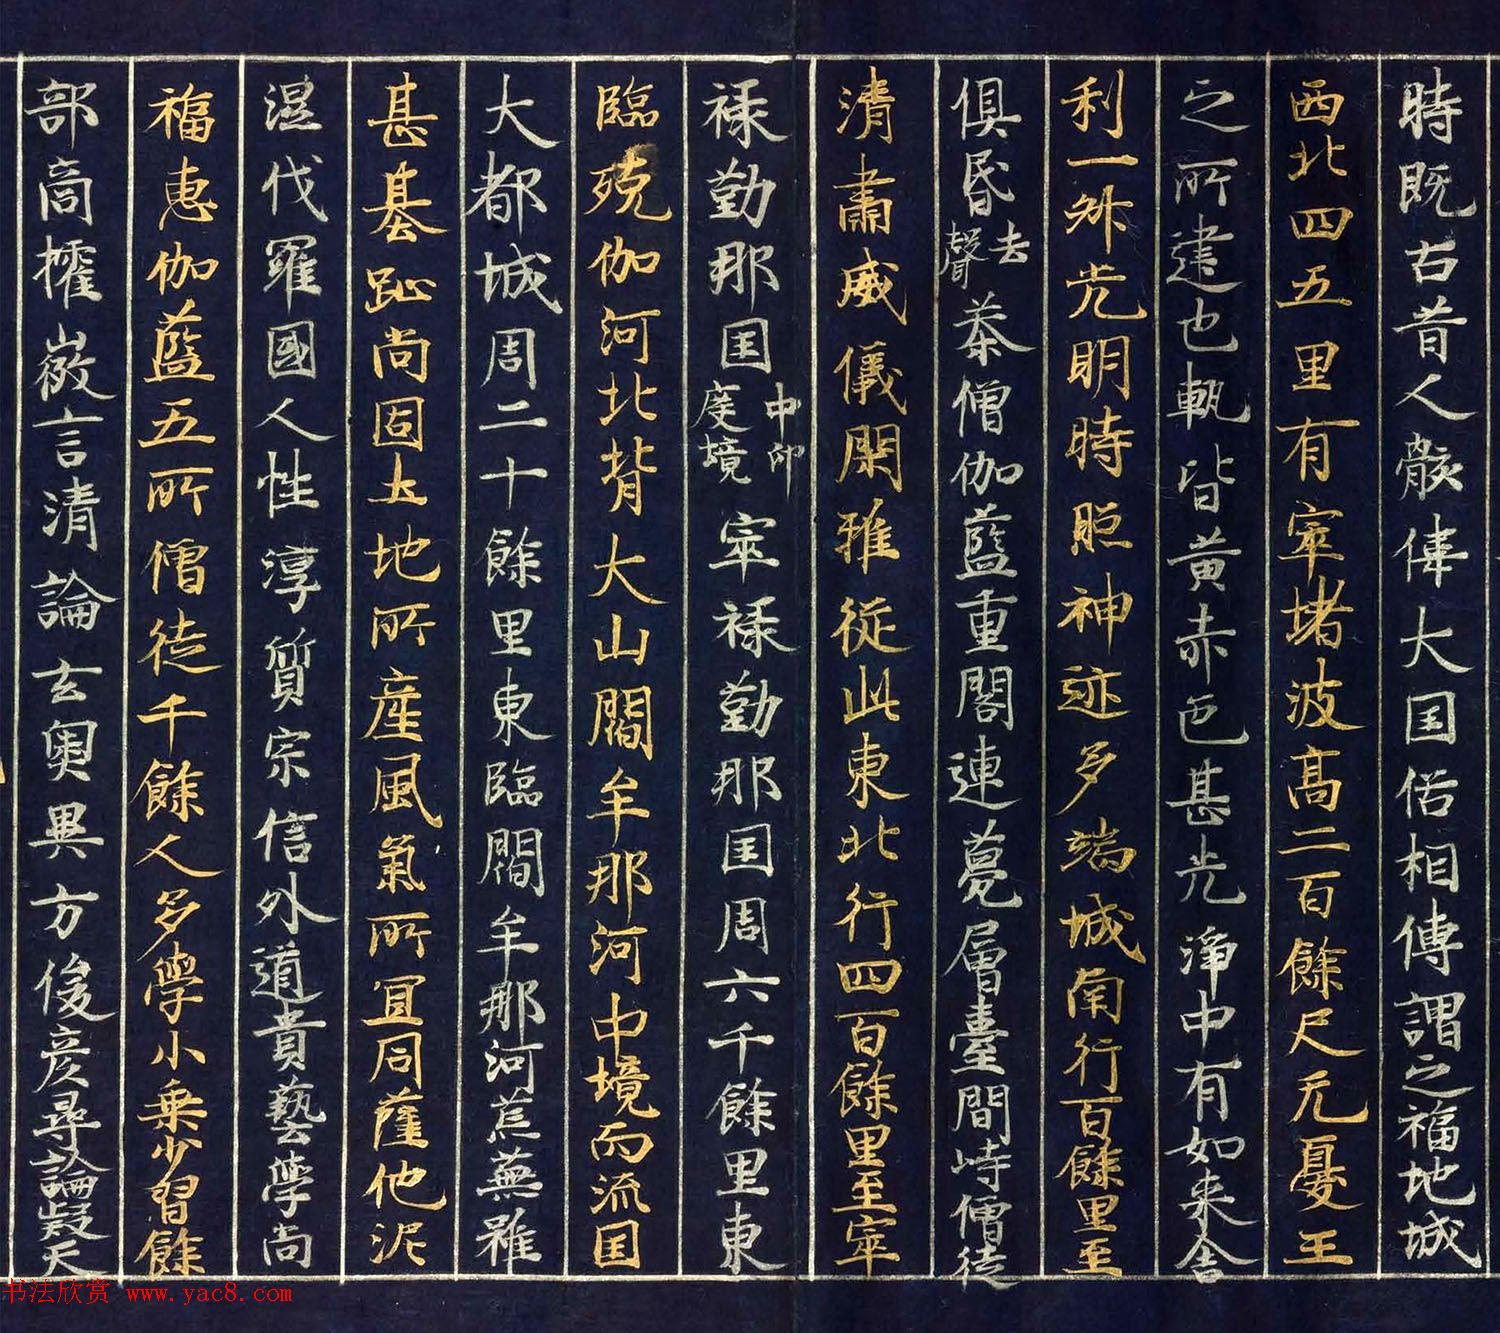 時既古昔人骸偉大国俗相傳謂之福地城
西北四五里有窣堵波高二百餘尺无憂王
之所建也甎皆黄赤色甚光淨中有如来舍
利一舛光明時照神迹多端城南行百餘里至
俱昏去聲荼僧伽藍重閣連甍層臺間峙僧徒
清肅威儀閑雅從此東北行四百餘里至窣
禄勤那国中印度境窣禄勤那国周六千餘里東
臨殑伽河北背大山閻牟那河中境而流国
大都城周二十餘里東臨閻牟那河荒蕪雖
甚基趾尚固土地所産風氣所宜同薩他泥
濕伐羅國人性淳質宗信外道貴藝學尚
福惠伽藍五所僧徒千餘人多學小乗少習餘
部商搉微言清論玄奧異方俊彦尋論疑天
书法欣赏 www.yac8.com